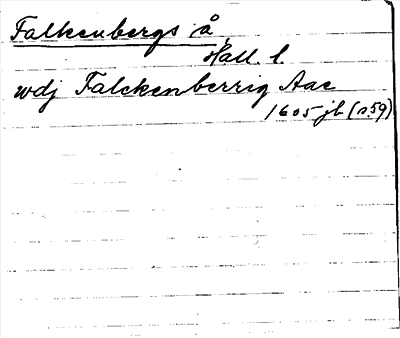 Falkenbergs å
Hall. l.
wdj Falckenberrig Aae
1605 jb (s.59)